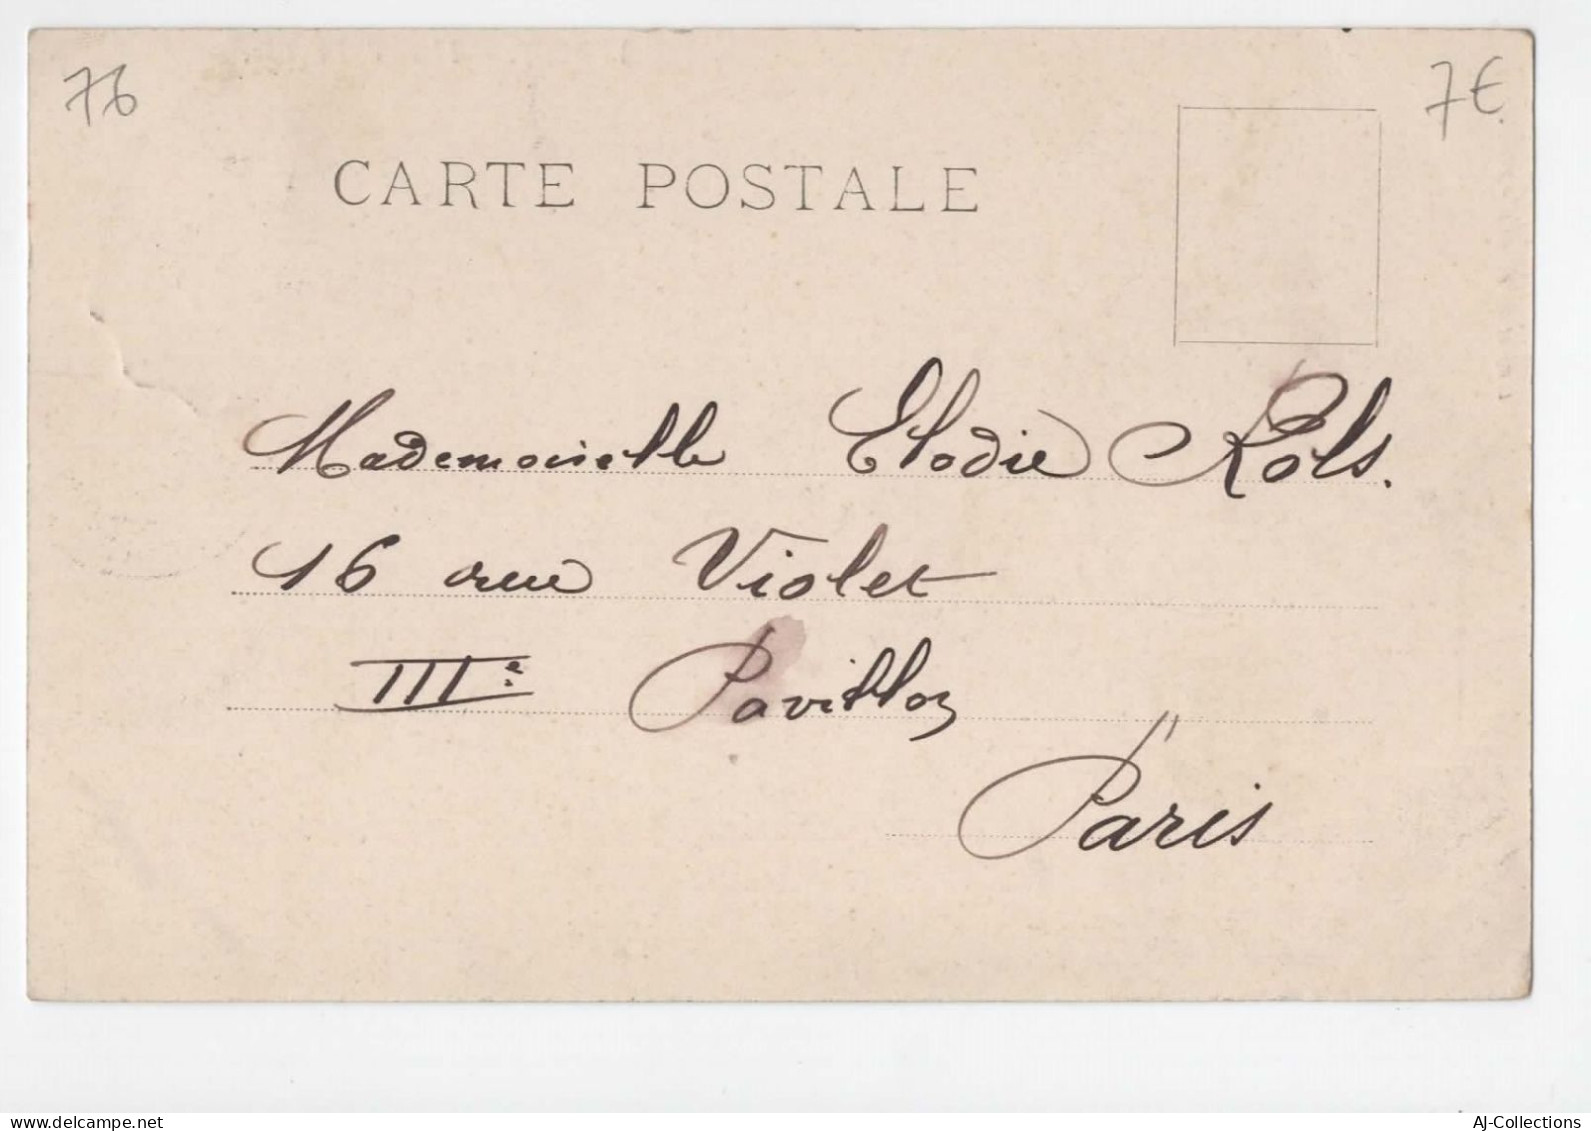 76
7€
CARTE POSTALE
Mademoiselle Elodie Rols.
16 rue Violet
IIIe Pavillon
Paris
www.delcampe.net
AJ-Collections